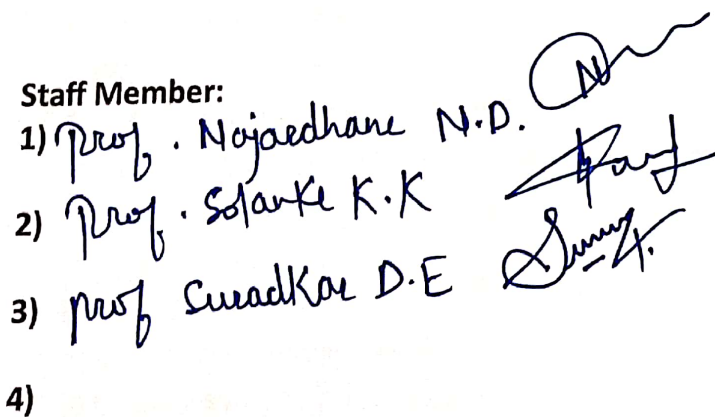 Staff Member:
1) Prof. Najardhane N.D.
2) Prof. Solanke K.K
3) prof Suradkar D.E
4)